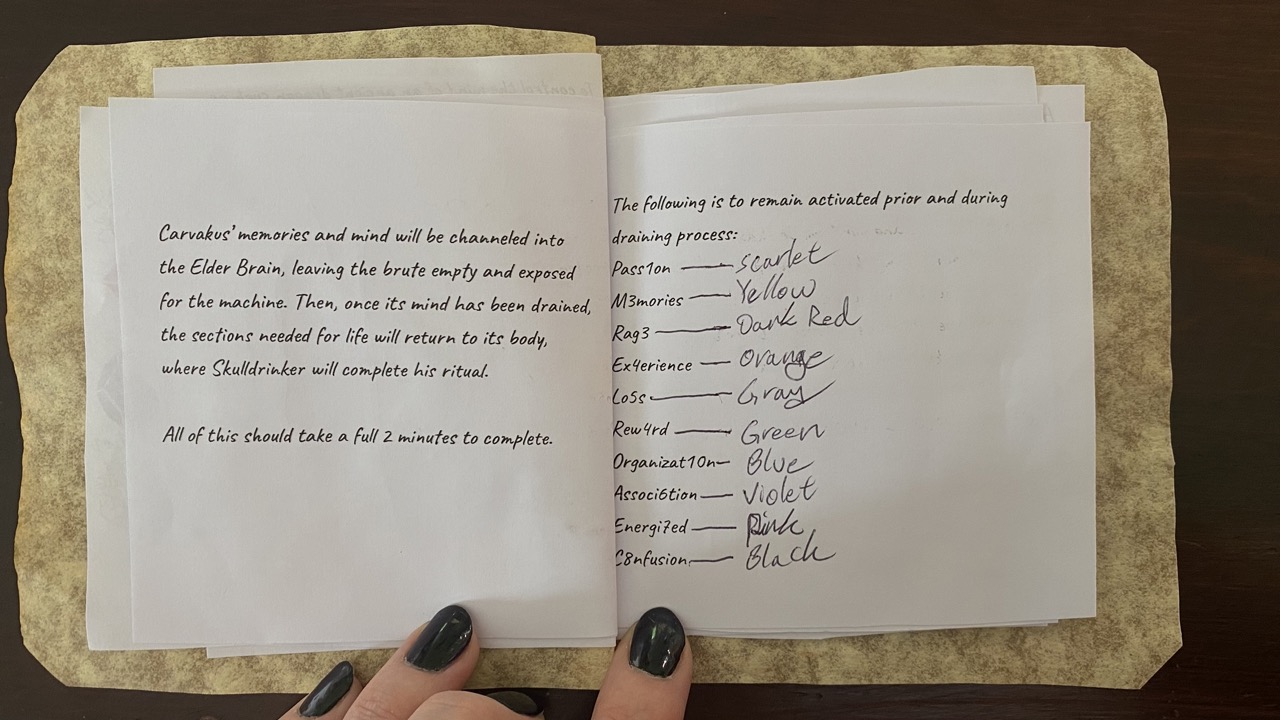 Carvakus' memories and mind will be channeled into
the Elder Brain, leaving the brute empty and exposed
for the machine. Then, once its mind has been drained,
the sections needed for life will return to its body,
where Skulldrinker will complete his ritual.
All of this should take a full 2 minutes to complete.
The following is to remain activated prior and during
draining process:
Pass1on — Scarlet
M3mories — Yellow
Rag3 — Dark Red
Ex4erience — Orange
Lo5s — Gray
Rew4rd — Green
Organizat10n — Blue
Associ6tion — Violet
Energi7ed — Pink
C8nfusion — Black